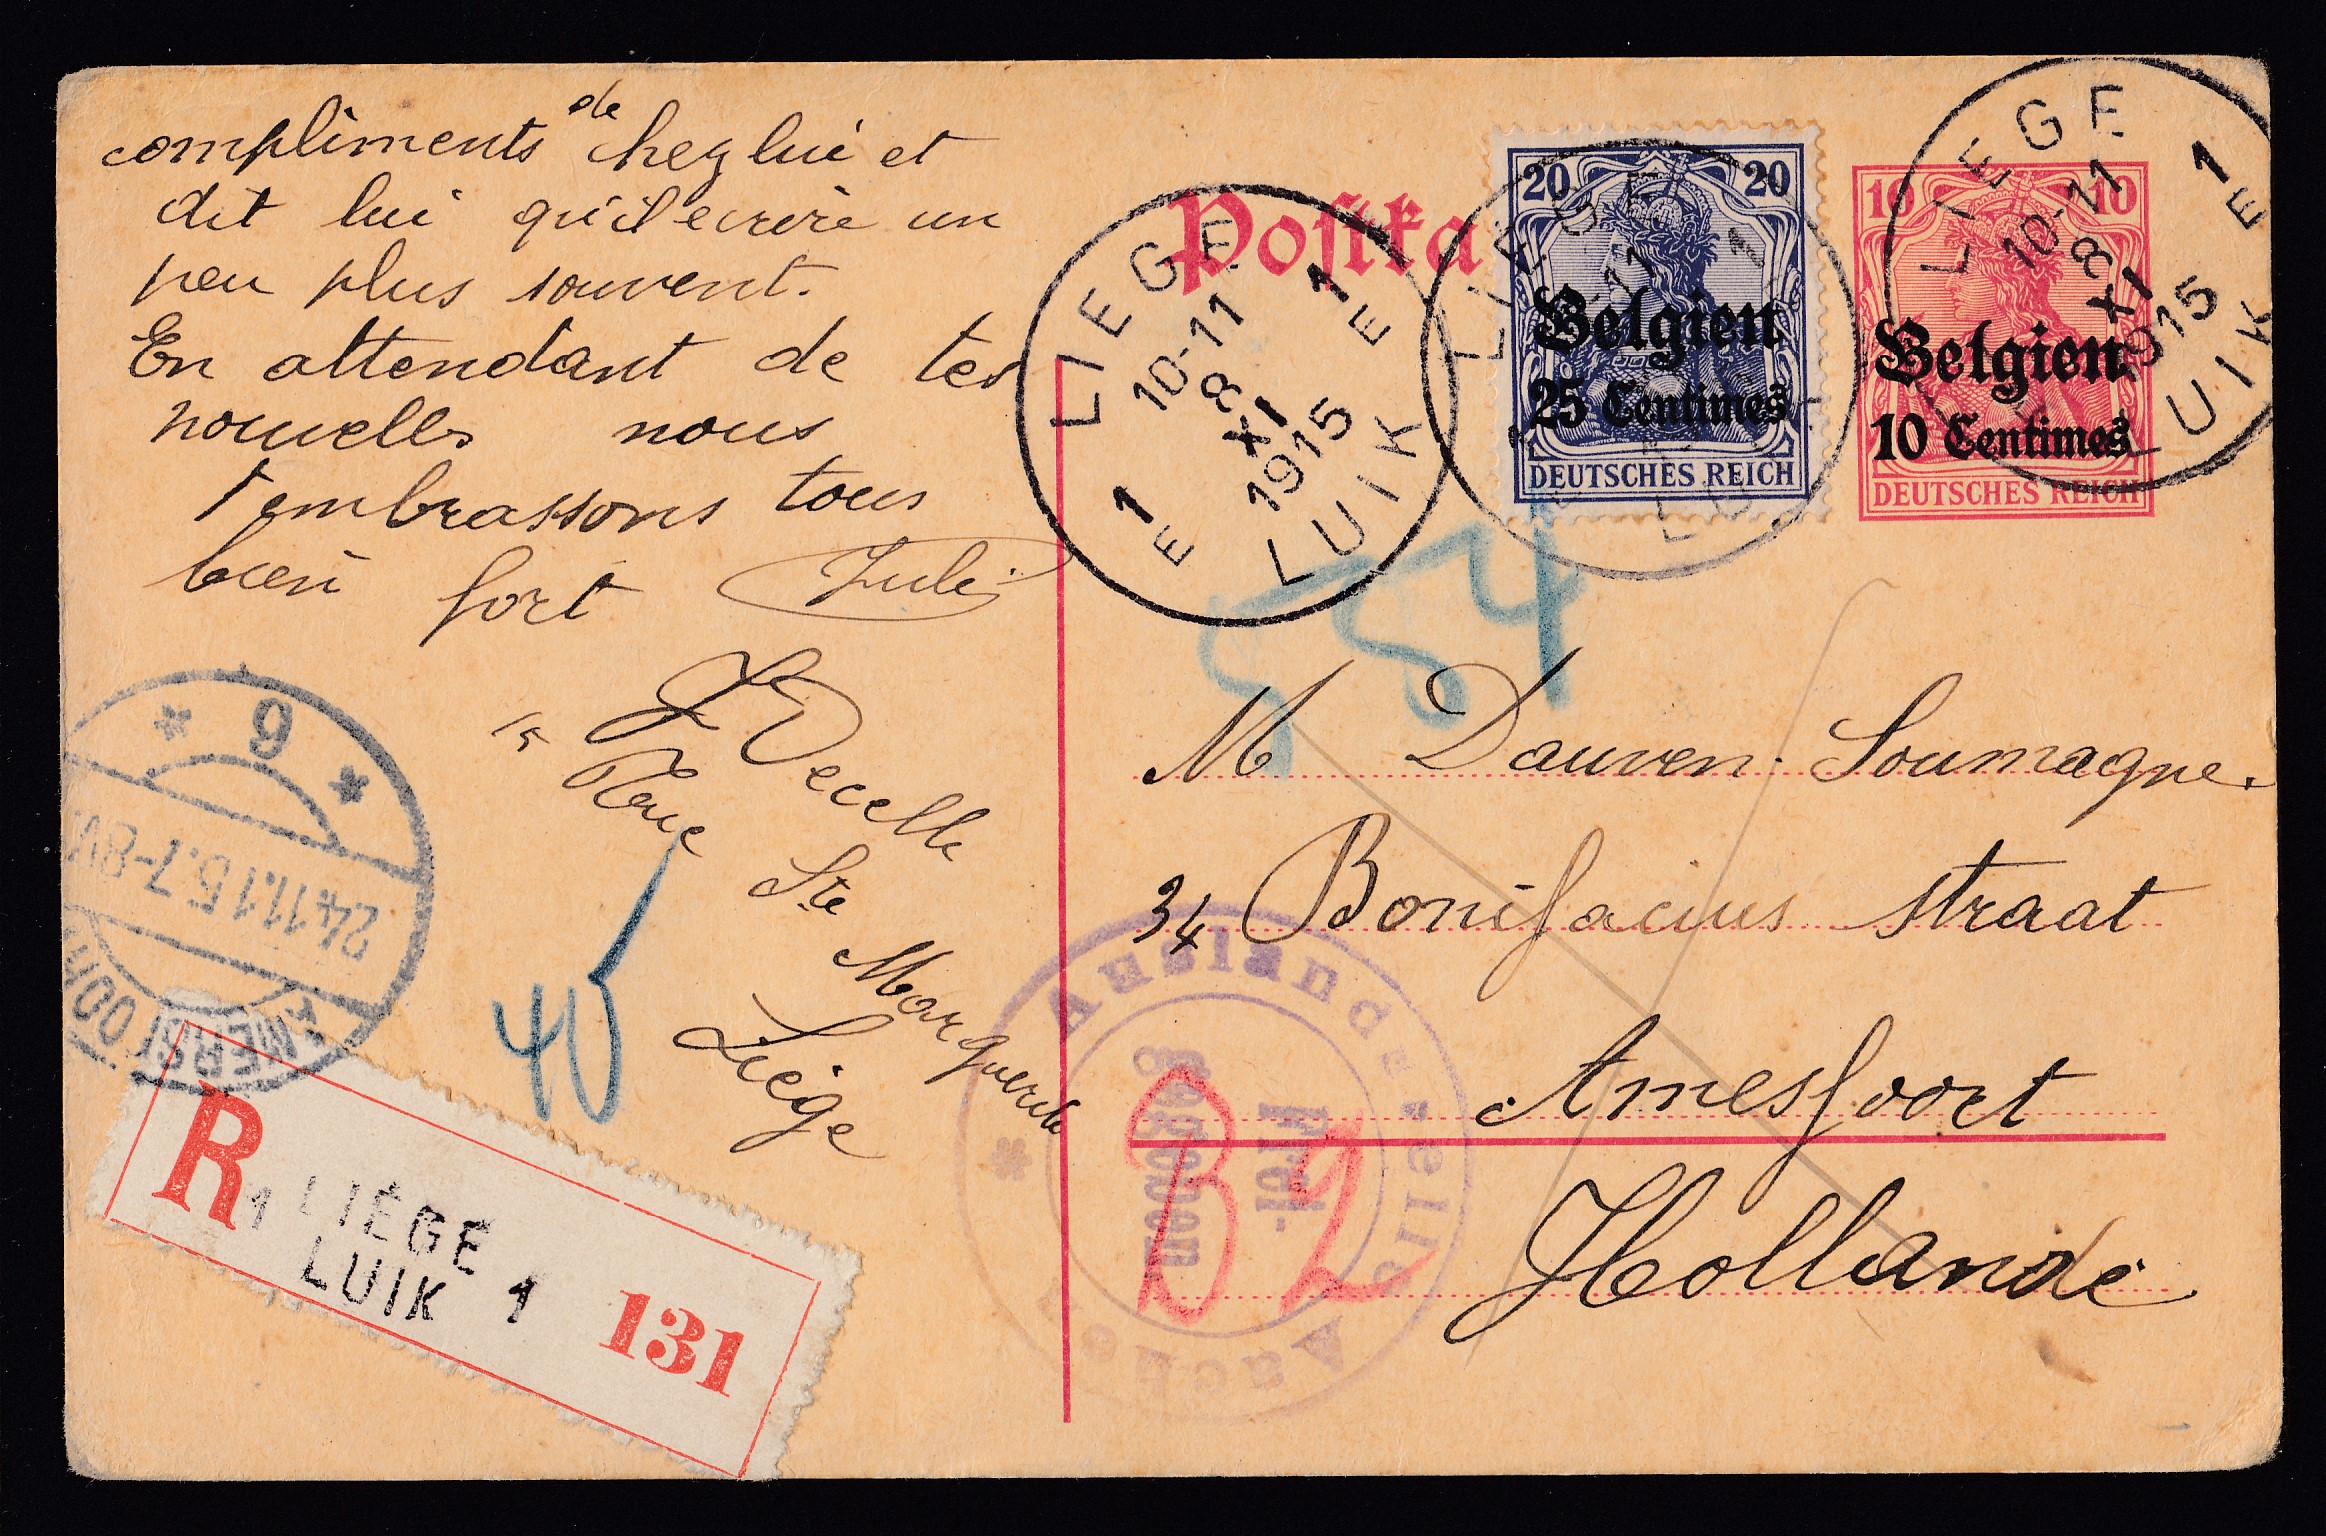 compliments de chez lui et
dit lui qu'il ecrire un
peu plus souvent.
En attendant de tes
nouvells nous
t'embrassons tous
bien fort
15
Rue Ste Marguerite
Liège
Postka
LIEGE
1 E
10-11
8
XI
1915
1 E
LUIK
LIEGE
20 20
Belgien
25 Centimes
DEUTSCHES REICH
10 10
Belgien
10 Centimes
DEUTSCHES REICH
LIEGE
1 E
10-11
8
XI
1915
LUIK
M Dauven-Soumagne.
34 Bonifacius straat
Amesfoort
Hollande
Auslandsstelle
Aachen
Frei-
gegeben
6
24.11.15.7-8V
AMERSFOORT
R
1 LIÉGE 1
LUIK
131